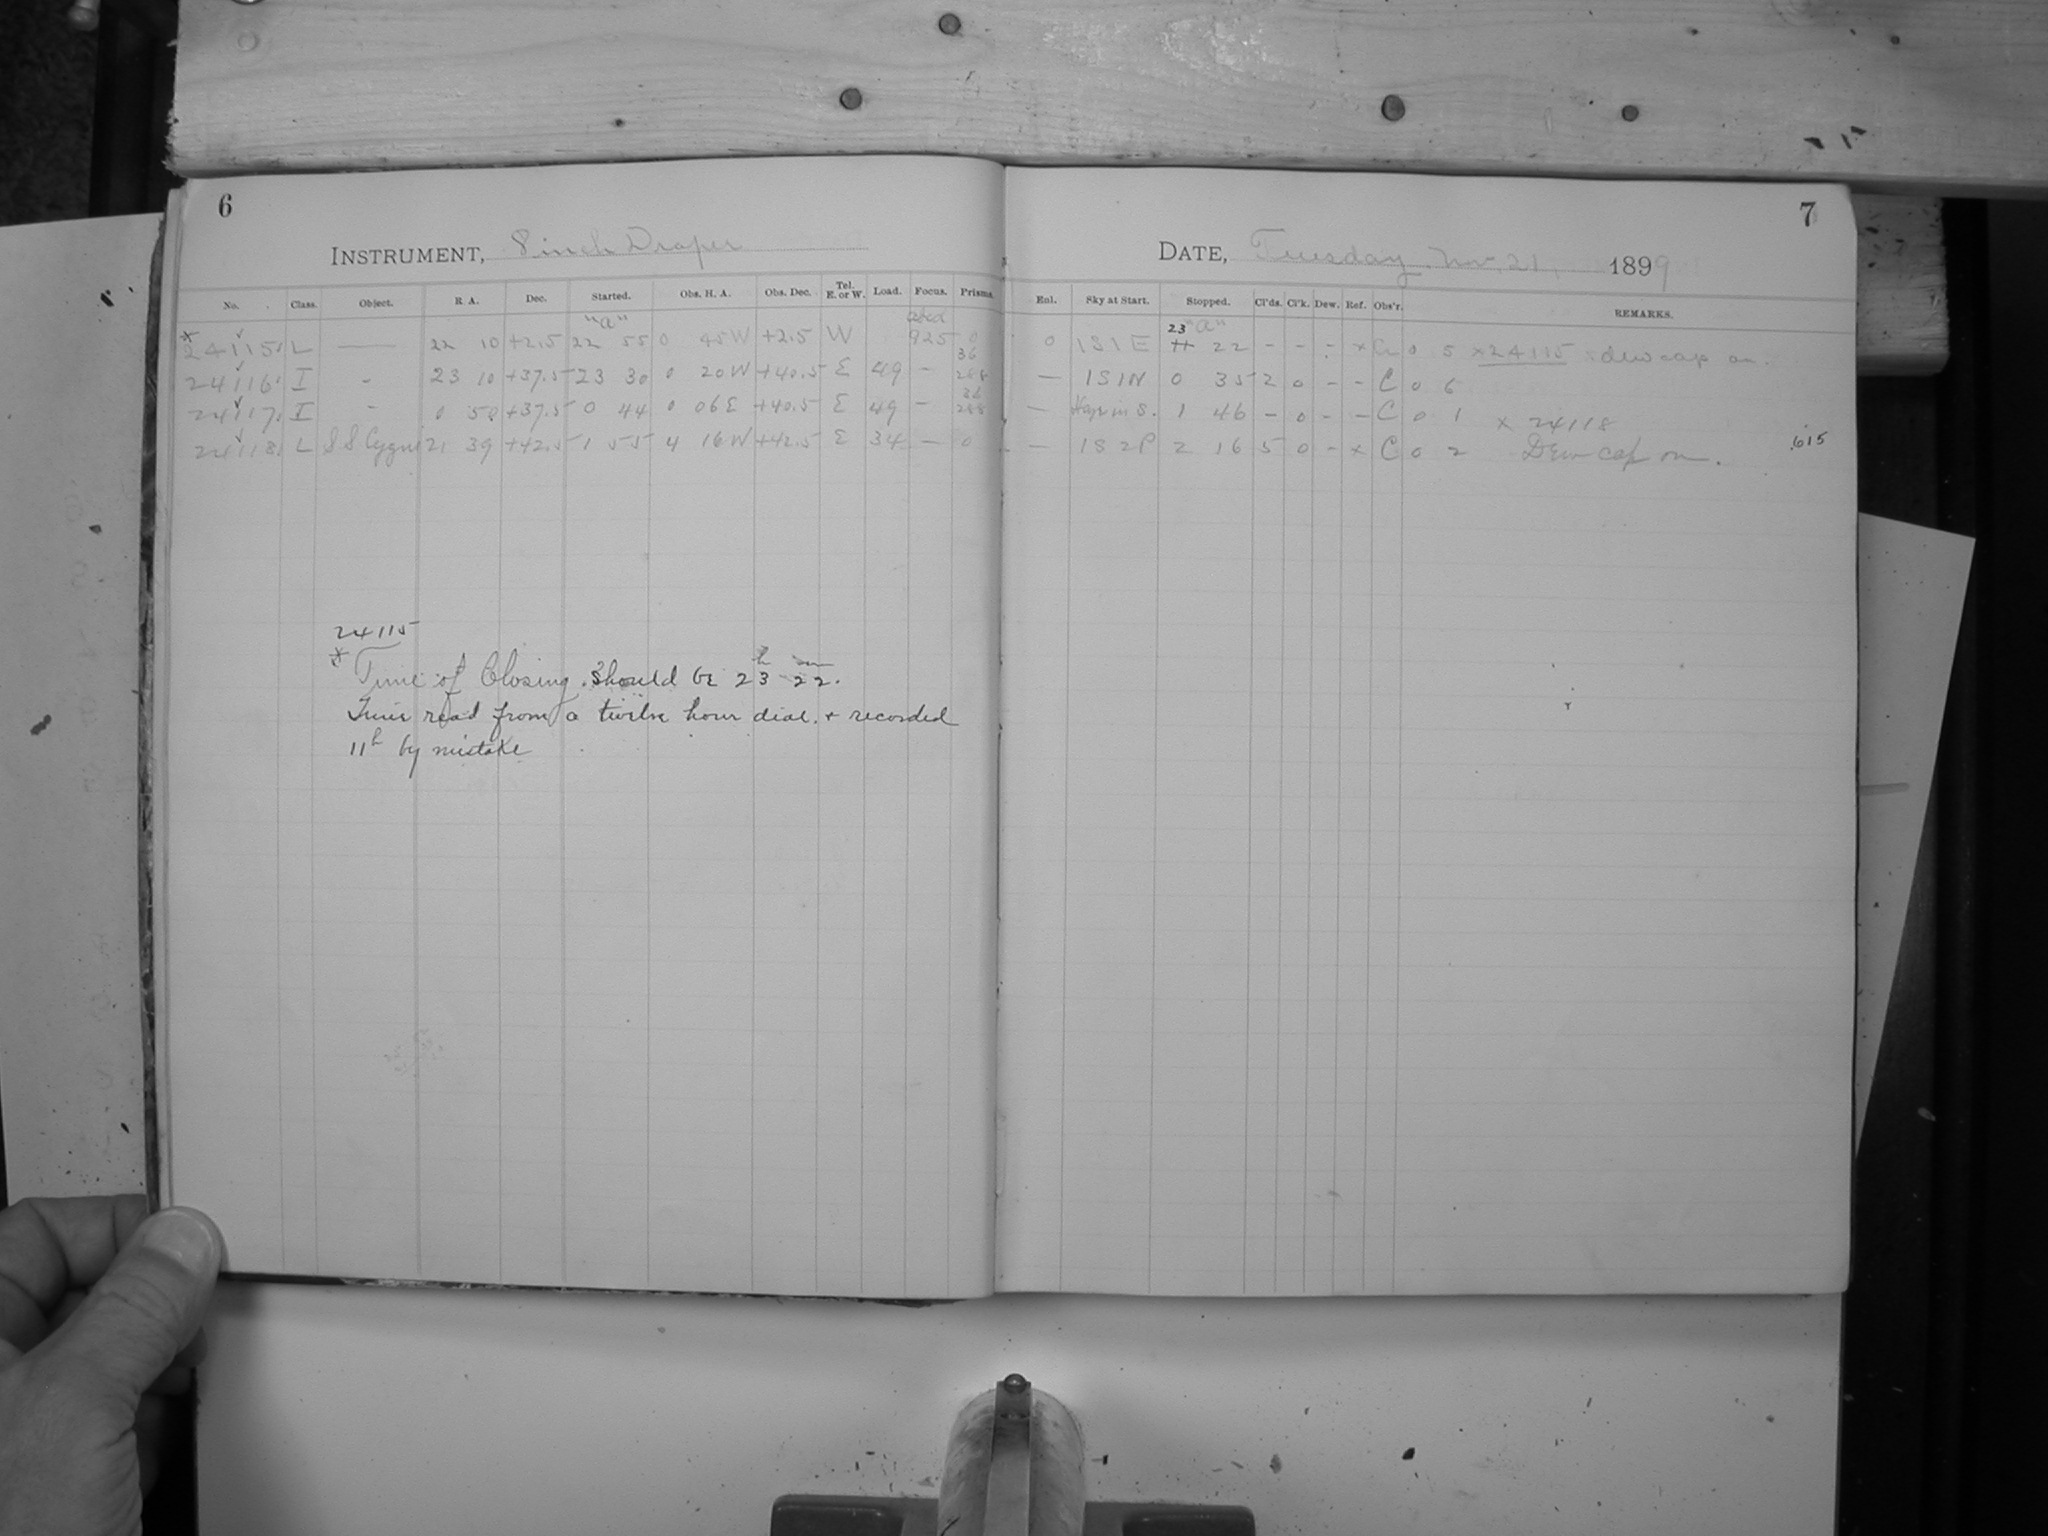 6
INSTRUMENT, 8 inch Draper
No. Class. Object. R. A. Dec. Started. Obs. H. A. Obs. Dec. Tel. E. or W. Load. Focus. Prisms.
"a"
* 24115 L — 22 10 +2.5 22 55 0 45W +2.5 W 925 0
24116 I - 23 10 +37.5 23 30 0 20W +40.5 E 49 - 36 288
24117 I - 0 50 +37.5 0 44 0 06E +40.5 E 49 - 36 288
24118 L SS Cygni 21 39 +42.5 1 55 4 16W +42.5 E 34 — 0
24115
* Time of Closing should be 23h 22m.
Time read from a twelve hour dial & recorded
11h by mistake
7
DATE, Tuesday Nov. 21, 1899
Enl. Sky at Start. Stopped. Cl'ds. Cl'k. Dew. Ref. Obs'r. REMARKS.
23 "a"
0 1S1E 11 22 - - - x 0 5 x 24115 dew cap on.
— 1S1N 0 35 2 0 - - C 0 6
— Hazy in S. 1 46 - 0 - - C 0 1 x 24118
— 1S2P 2 16 5 0 - x C 0 2 Dew cap on. 615